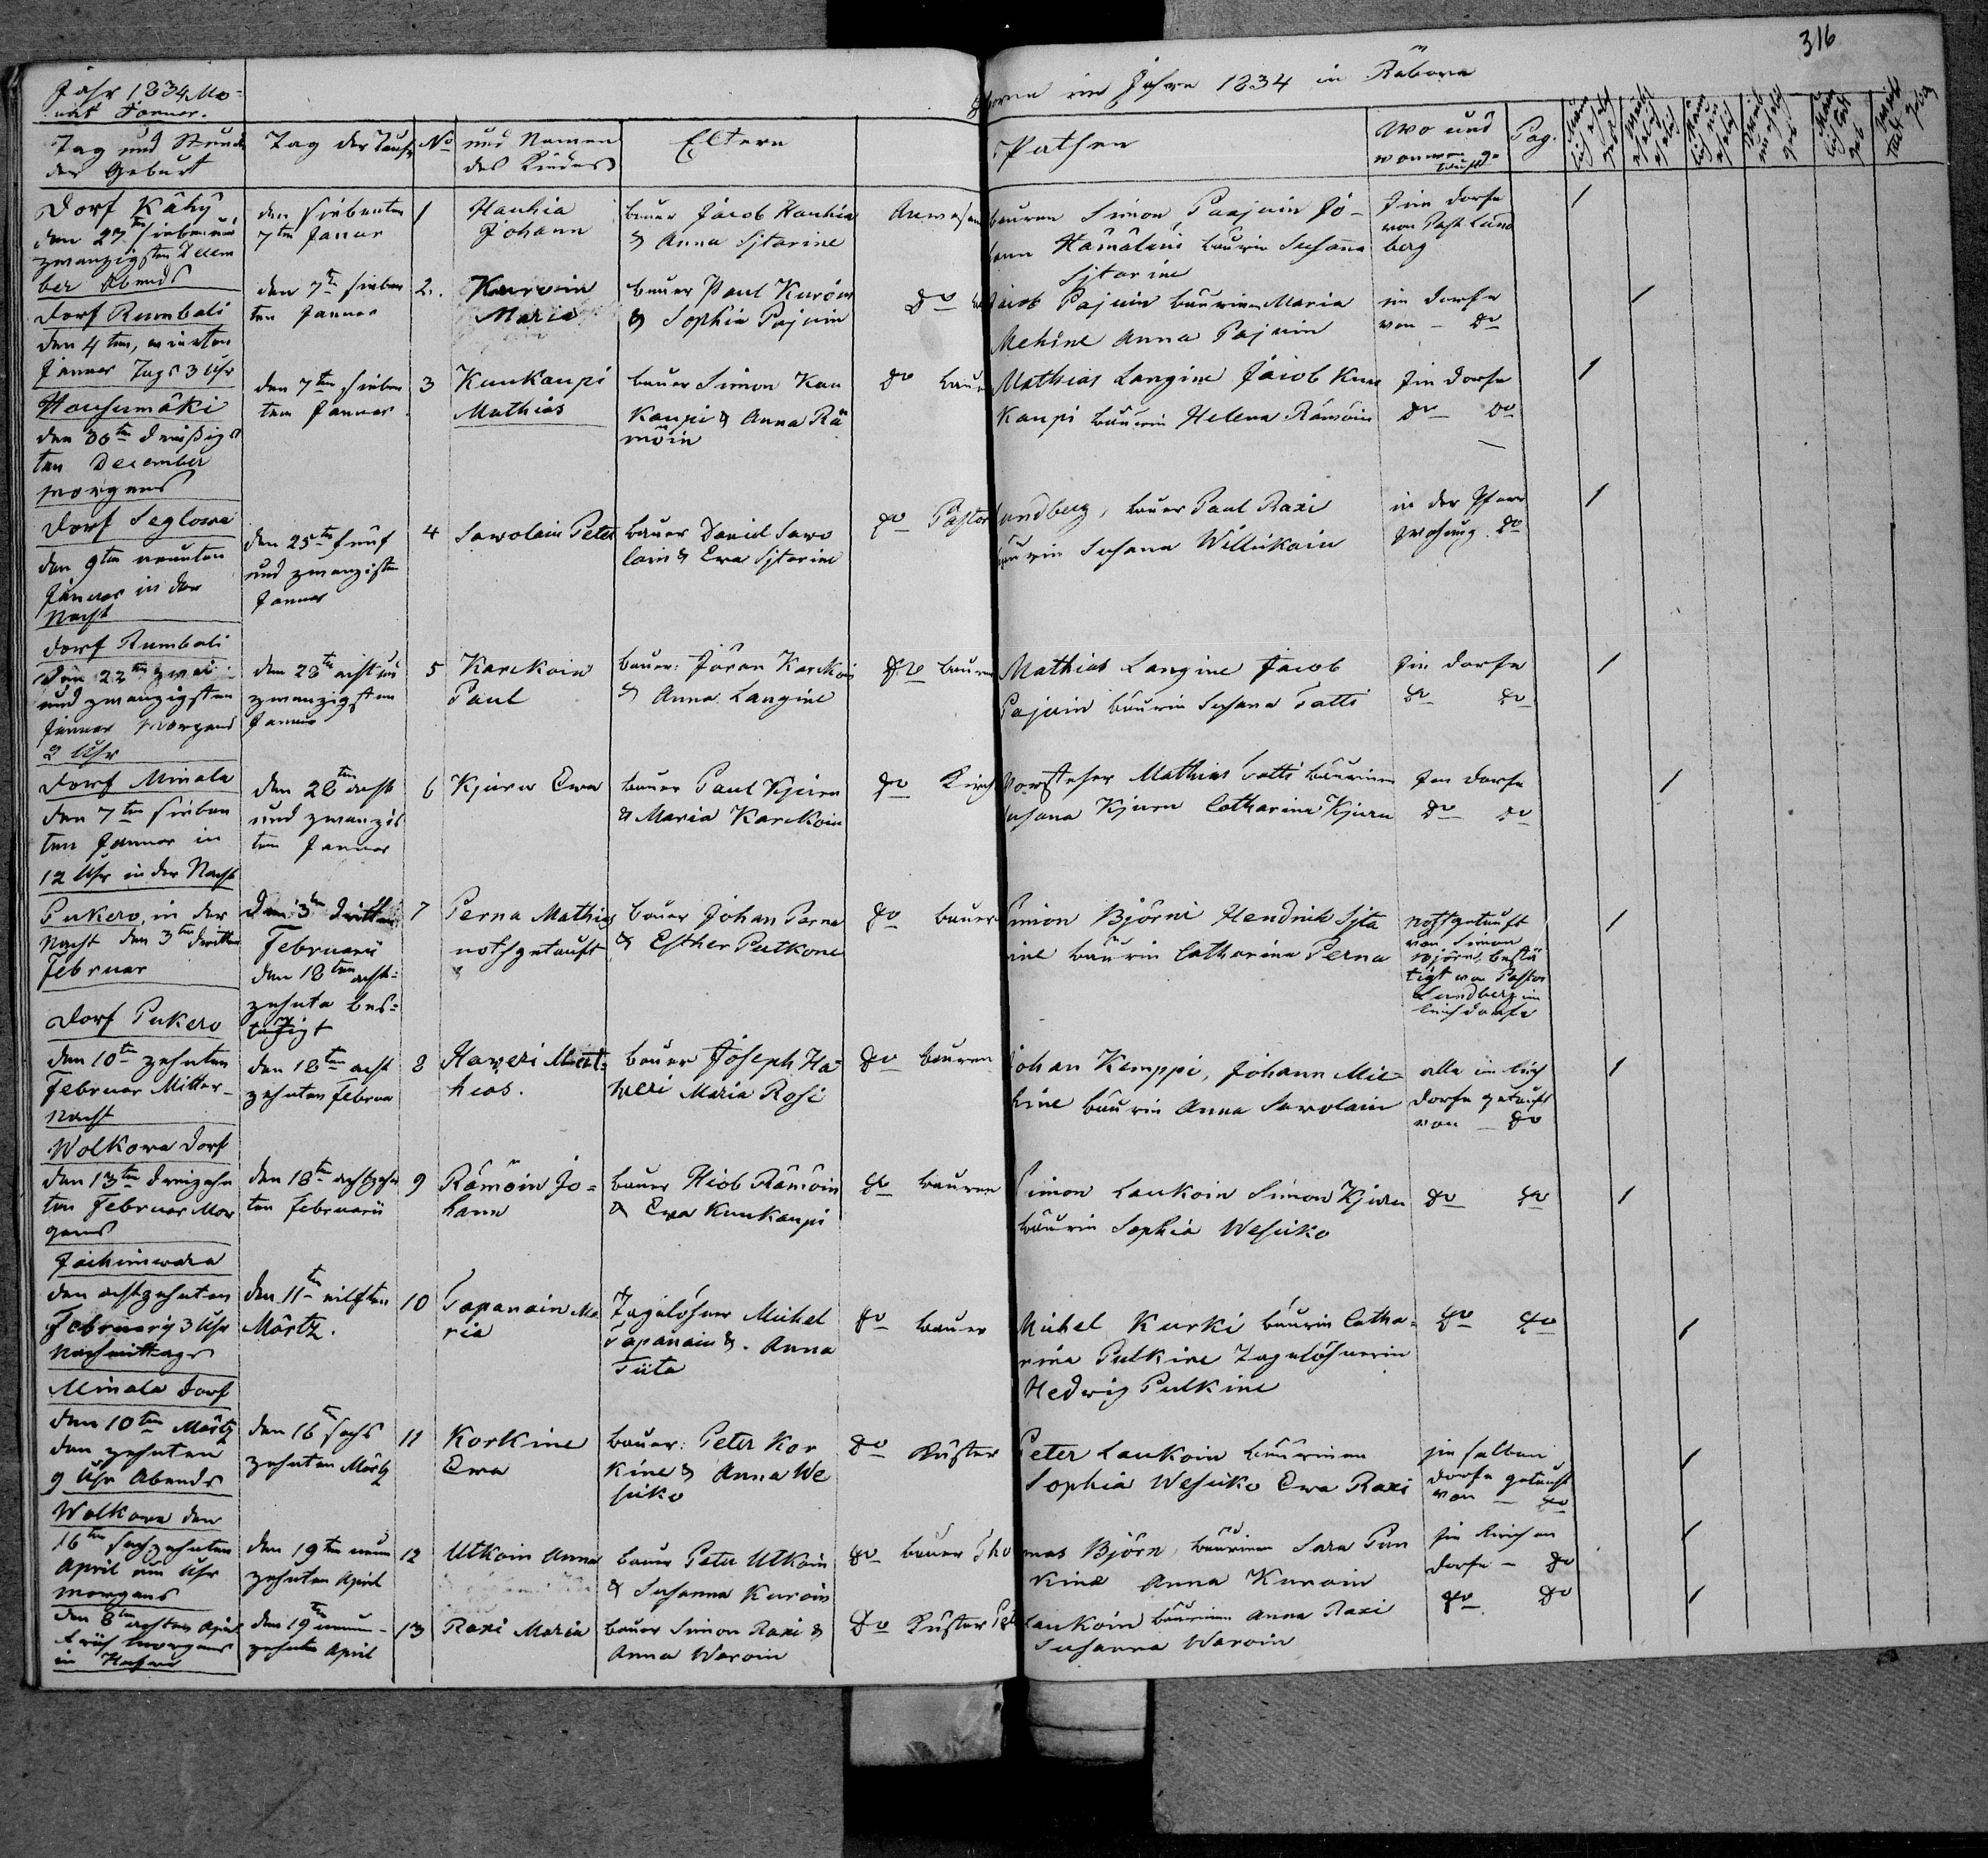 316
Jahr 1834 Mo-
nat Januar.
Geboren im Jahre 1834 in Räbova
Tag und Stunde
der Geburt
Tag der Taufe
No
und Namen
des Kindes
Eltern
Pathen
Wo und
von wem ge
tauft
Pag.
Dorf Kähy
den 27ten sieben und
zwanzigsten Decem
ber Abends
den siebenten
7ten Januar
1
Hauhia
Johann
bauer Jacob Hauhia
& Anna Sjtarine
Anwesen
bauren Simon Paajuin Jo-
hann Hämäläine bäurin Susanna
Sjtarine
Im Dorfe
von Past. Lund
berg
Dorf Rumbali
den 4ten, vierten
Januar Tags 3 Uhr
den 7ten sieben
ten Januar
2.
Kuroin
Maria
bauer Paul Kuroin
& Sophia Pajuin
Do
Jacob Pajuin bäurinnen Maria
Mehine Anna Pajuin
im Dorfe
von - Do
Housumäki
den 30ten dreißigs
ten December
morgens
den 7ten sieben
ten Januar
3
Kuukaupi
Mathias
bauer Simon Kuu
Kaupi & Anna Rä
möin
Do bauer
Mathias Langine Jacob Kuu
Kaupi bäurin Helena Rämöin
Im Dorfe
Do Do
Dorf Seglowa
den 9ten neunten
Januar in der
Nacht
den 25ten fünf
und zwanzigsten
Januar
4
Sawolain Peter
bauer David Sawo
lain & Ewa Sjtarine
Do Pastor
Lundberg, bauer Paul Raxi
bäurin Susana Willikain
in der Pfarr
wohnung. Do
Dorf Rumbali
den 22ten zwei
und zwanzigsten
Januar morgens
2 Uhr
den 28ten acht und
zwanzigsten
Januar
5
Karckoin
Paul
bauer: Jöran Karckoin
& Anna Langine
Do bauren
Mathias Langine Jacob
Pajuin bäurin Susana Tatti
Im Dorfe
Do Do
Dorf Minala
den 7ten sieben
ten Januar in
12 Uhr in der Nacht
den 28ten acht
und zwanzigs
ten Januar
6
Kjuru Ewa
bauer Paul Kjuru
& Maria Karckoin
Do Kirch
Vorsteher Mathias Tatti bäurinnen
Susana Kjuru Catharina Kjuru
Im Dorfe
Do Do
Pukero, in der
Nacht den 3ten dritten
Februar
den 3ten dritten
Februarii
den 18ten acht-
zehnten bes-
tätigt
7
Perna Mathias
nothgetauft
bauer Johan Perna
& Esther Putkone
Do bauer
Simon Björni Hendrik Sjta
rine bäurin Catharina Perna
nothgetauft
von Simon
Björni, bestä
tigt von Pastor
Lundberg im
Dorfe
Dorf Pukero
den 10ten zehnten
Februar Mitter-
nacht
den 18ten acht
zehnten Februar
8
Haweri Mat-
hias.
bauer Joseph Ha-
weri Maria Rosi
Do bauren
Johan Kemppi, Johann Mie-
hine bäurin Anna Sawolain
alle im
Dorfe getauft
von - Do
Wolkowa Dorf
den 13ten dreizehn
ten Februar Mor
gens
den 18ten achtzehn
ten Februarii
9
Rämöin Jo-
hann
bauer Hiob Rämöin
& Ewa Kuukaupi
Do bauren
Simon Laukoin Simon Kjuru
bäurin Sophia Wesiko
Do Do
Jaihimwara
den achtzehnten
February 3 Uhr
Nachmittags
den 11ten eilften
Märtz.
10
Tapanain Ma
ria
Tagelöhner Michel
Tapanain &. Anna
Tiita
Do bauer
Michel Kurki bäurin Catha-
rina Pulkine Tagelöhnerin
Hedwig Pulkine
Do Do
Minala Dorf
den 10ten Märtz
den zehnten
9 Uhr Abends
den 16ten sechs
zehnten Märtz
11
Korkine
Ewa
bauer: Peter Kor
kine & Anna We
siko
Do Küster
Peter Laukoin bäurinnen
Sophia Wesiko Ewa Raxi
Im selben
Dorfe getauft
von - Do
Wolkowa den
16ten sechzehnten
April ein Uhr
morgens
den 19ten neun
zehnten April
12
Utkoin Anna
bauer Peter Utkoin
& Susanna Kuroin
Do bauer Tho
mas Björn, bäurinnen Sara Pun
kine Anna Kuroin
Im Kirchen
dorfe - Do
den 8ten achten April
früh morgens
in
den 19ten neun-
zehnten April
13
Raxi Maria
bauer Simon Raxi &
Anna Waroin
Do Küster Pet
Laukoin bäurinnen Anna Raxi
Susanna Waroin
Do Do